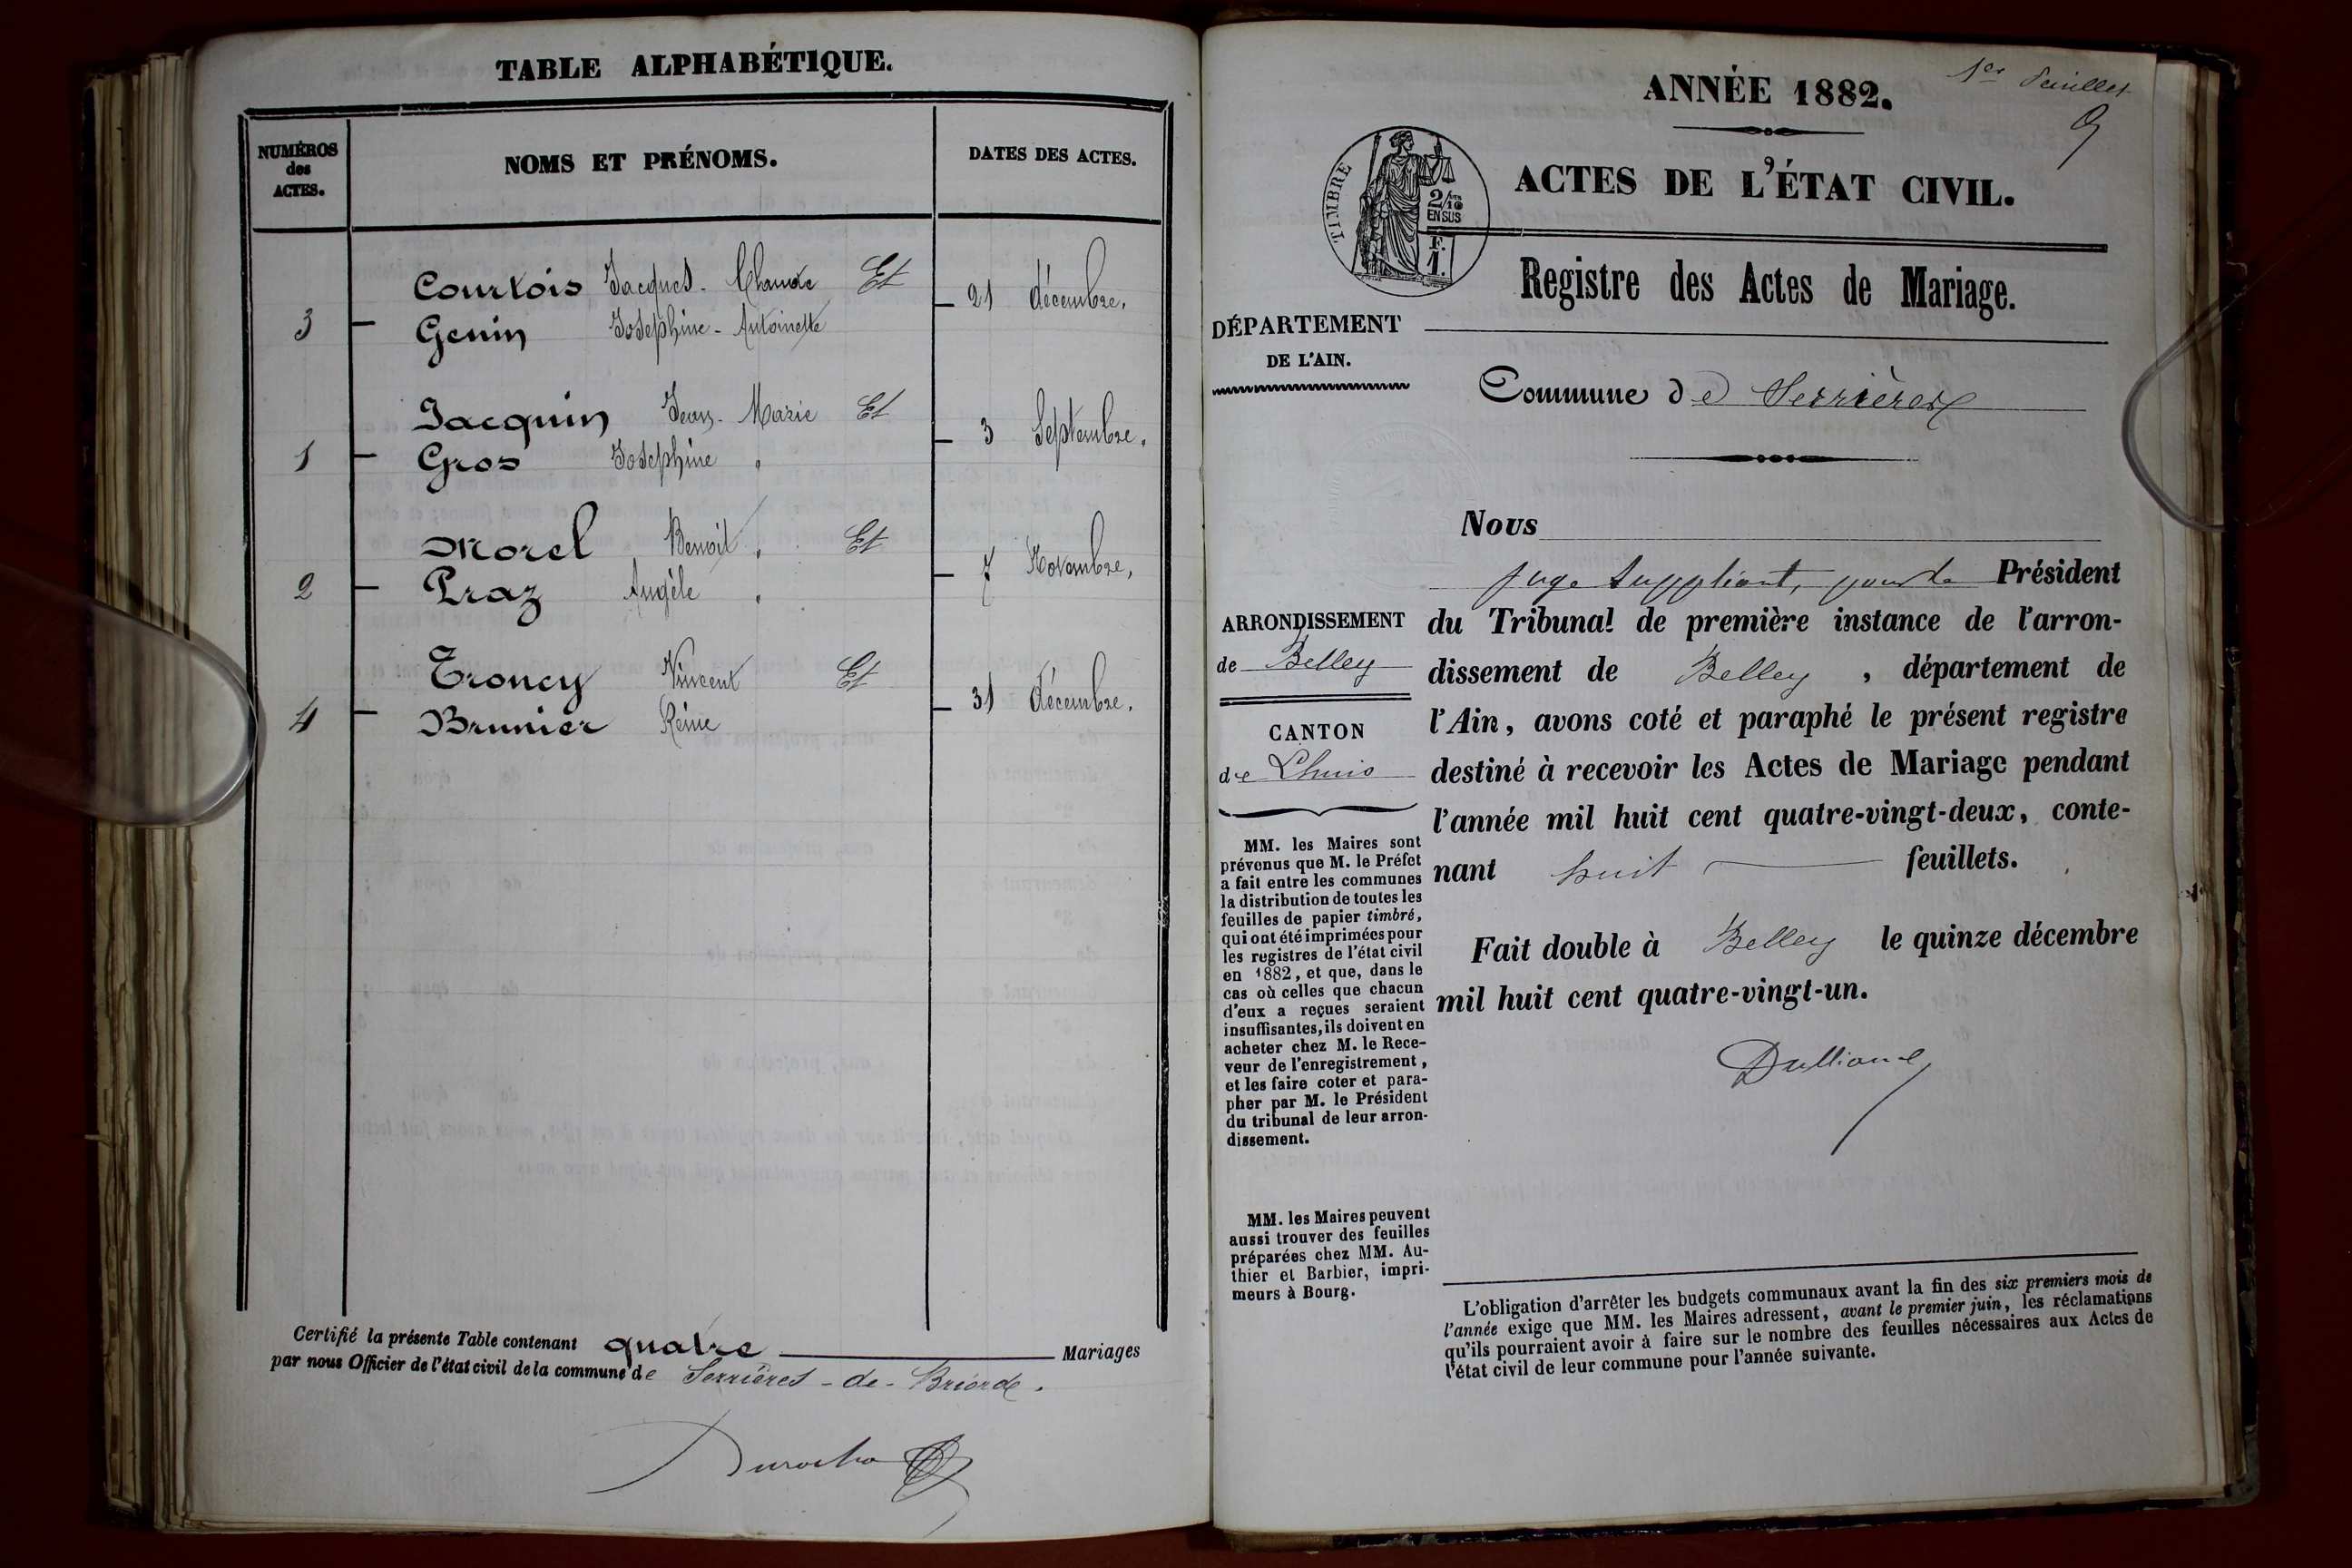 TABLE ALPHABÉTIQUE.
NUMÉROS
des
ACTES.
NOMS ET PRÉNOMS.
DATES DES ACTES.
Courtois Jacques-Claude Et
21 décembre.
3 Genin Joséphine-Antoinette
Jacquin Jean-Marie Et
3 Septembre.
1 Gros Joséphine
Morel Benoit Et
7 Novembre,
2 Praz Angèle
Troncy Vincent Et
31 décembre.
4 Brunier Reine
Certifié la présente Table contenant quatre Mariages
par nous Officier de l'état civil de la commune de Serrières-de-Briorde.
1er feuillet
ANNÉE 1882.
TIMBRE
2/10
EN SUS
F.
1.
ACTES DE L'ÉTAT CIVIL.
Registre des Actes de Mariage.
DÉPARTEMENT
DE L'AIN.
Commune de Serrières
ARRONDISSEMENT
de Belley
CANTON
de Lhuis
MM. les Maires sont
prévenus que M. le Préfet
a fait entre les communes
la distribution de toutes les
feuilles de papier timbré,
qui ont été imprimées pour
les registres de l'état civil
en 1882, et que, dans le
cas où celles que chacun
d'eux a reçues seraient
insuffisantes, ils doivent en
acheter chez M. le Rece-
veur de l'enregistrement,
et les faire coter et para-
pher par M. le Président
du tribunal de leur arron-
dissement.
MM. les Maires peuvent
aussi trouver des feuilles
préparées chez MM. Au-
thier et Barbier, impri-
meurs à Bourg.
Nous
juge suppléant, pour le Président
du Tribunal de première instance de l'arron-
dissement de Belley, département de
l'Ain, avons coté et paraphé le présent registre
destiné à recevoir les Actes de Mariage pendant
l'année mil huit cent quatre-vingt-deux, conte-
nant huit feuillets.
Fait double à Belley le quinze décembre
mil huit cent quatre-vingt-un.
L'obligation d'arrêter les budgets communaux avant la fin des six premiers mois de
l'année exige que MM. les Maires adressent, avant le premier juin, les réclamations
qu'ils pourraient avoir à faire sur le nombre des feuilles nécessaires aux Actes de
l'état civil de leur commune pour l'année suivante.